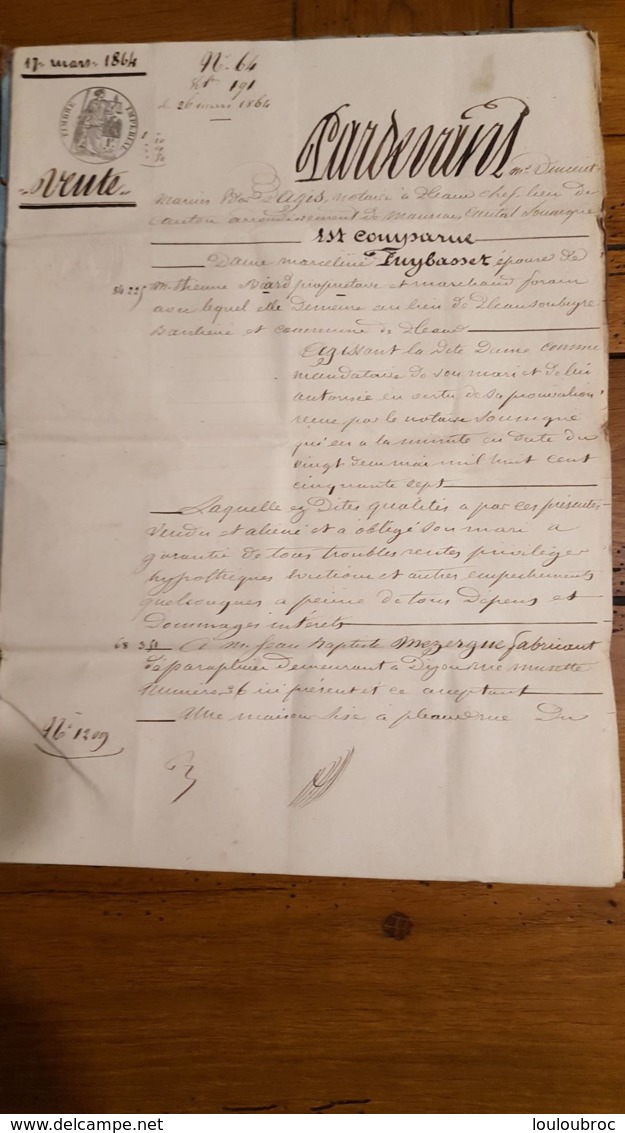 17 mars 1864
N° 64
191
26 mars 1864
TIMBRE IMPERIAL
Vente
Pardevant Me Vincent
Marius notaire à Pleaux chef lieu de
Canton arrondissement de Mauriac Cantal Soussigné
Est comparue
Dame marceline Puybasset épouse de
Mr Etienne Biard propriétaire et marchand forain
avec lequel elle demeure au lieu de Pleausoubeyre
Banlieue et commune de Pleaux
Agissant la dite Dame comme
mandataire de son mari et de lui
autorisée en vertu de sa procuration
reçue par le notaire soussigné
qui en a la minute en date du
vingt deux mai mil huit cent
cinquante sept
Laquelle ez dites qualités a par ces présentes
vendu et aliéné et a obligé son mari a
garantir de tous troubles rentes privilèges
hypothèques évictions et autres empechements
quelconques a peine de tous Depens et
Dommages intérets
A Mr Jean Baptiste Mezergue fabricant
de parapluie demeurant à Dijon rue musette
numéro 36 ici présent et ce acceptant
Une maison sise à pleaux rue Du
N° 1209
louloubroc